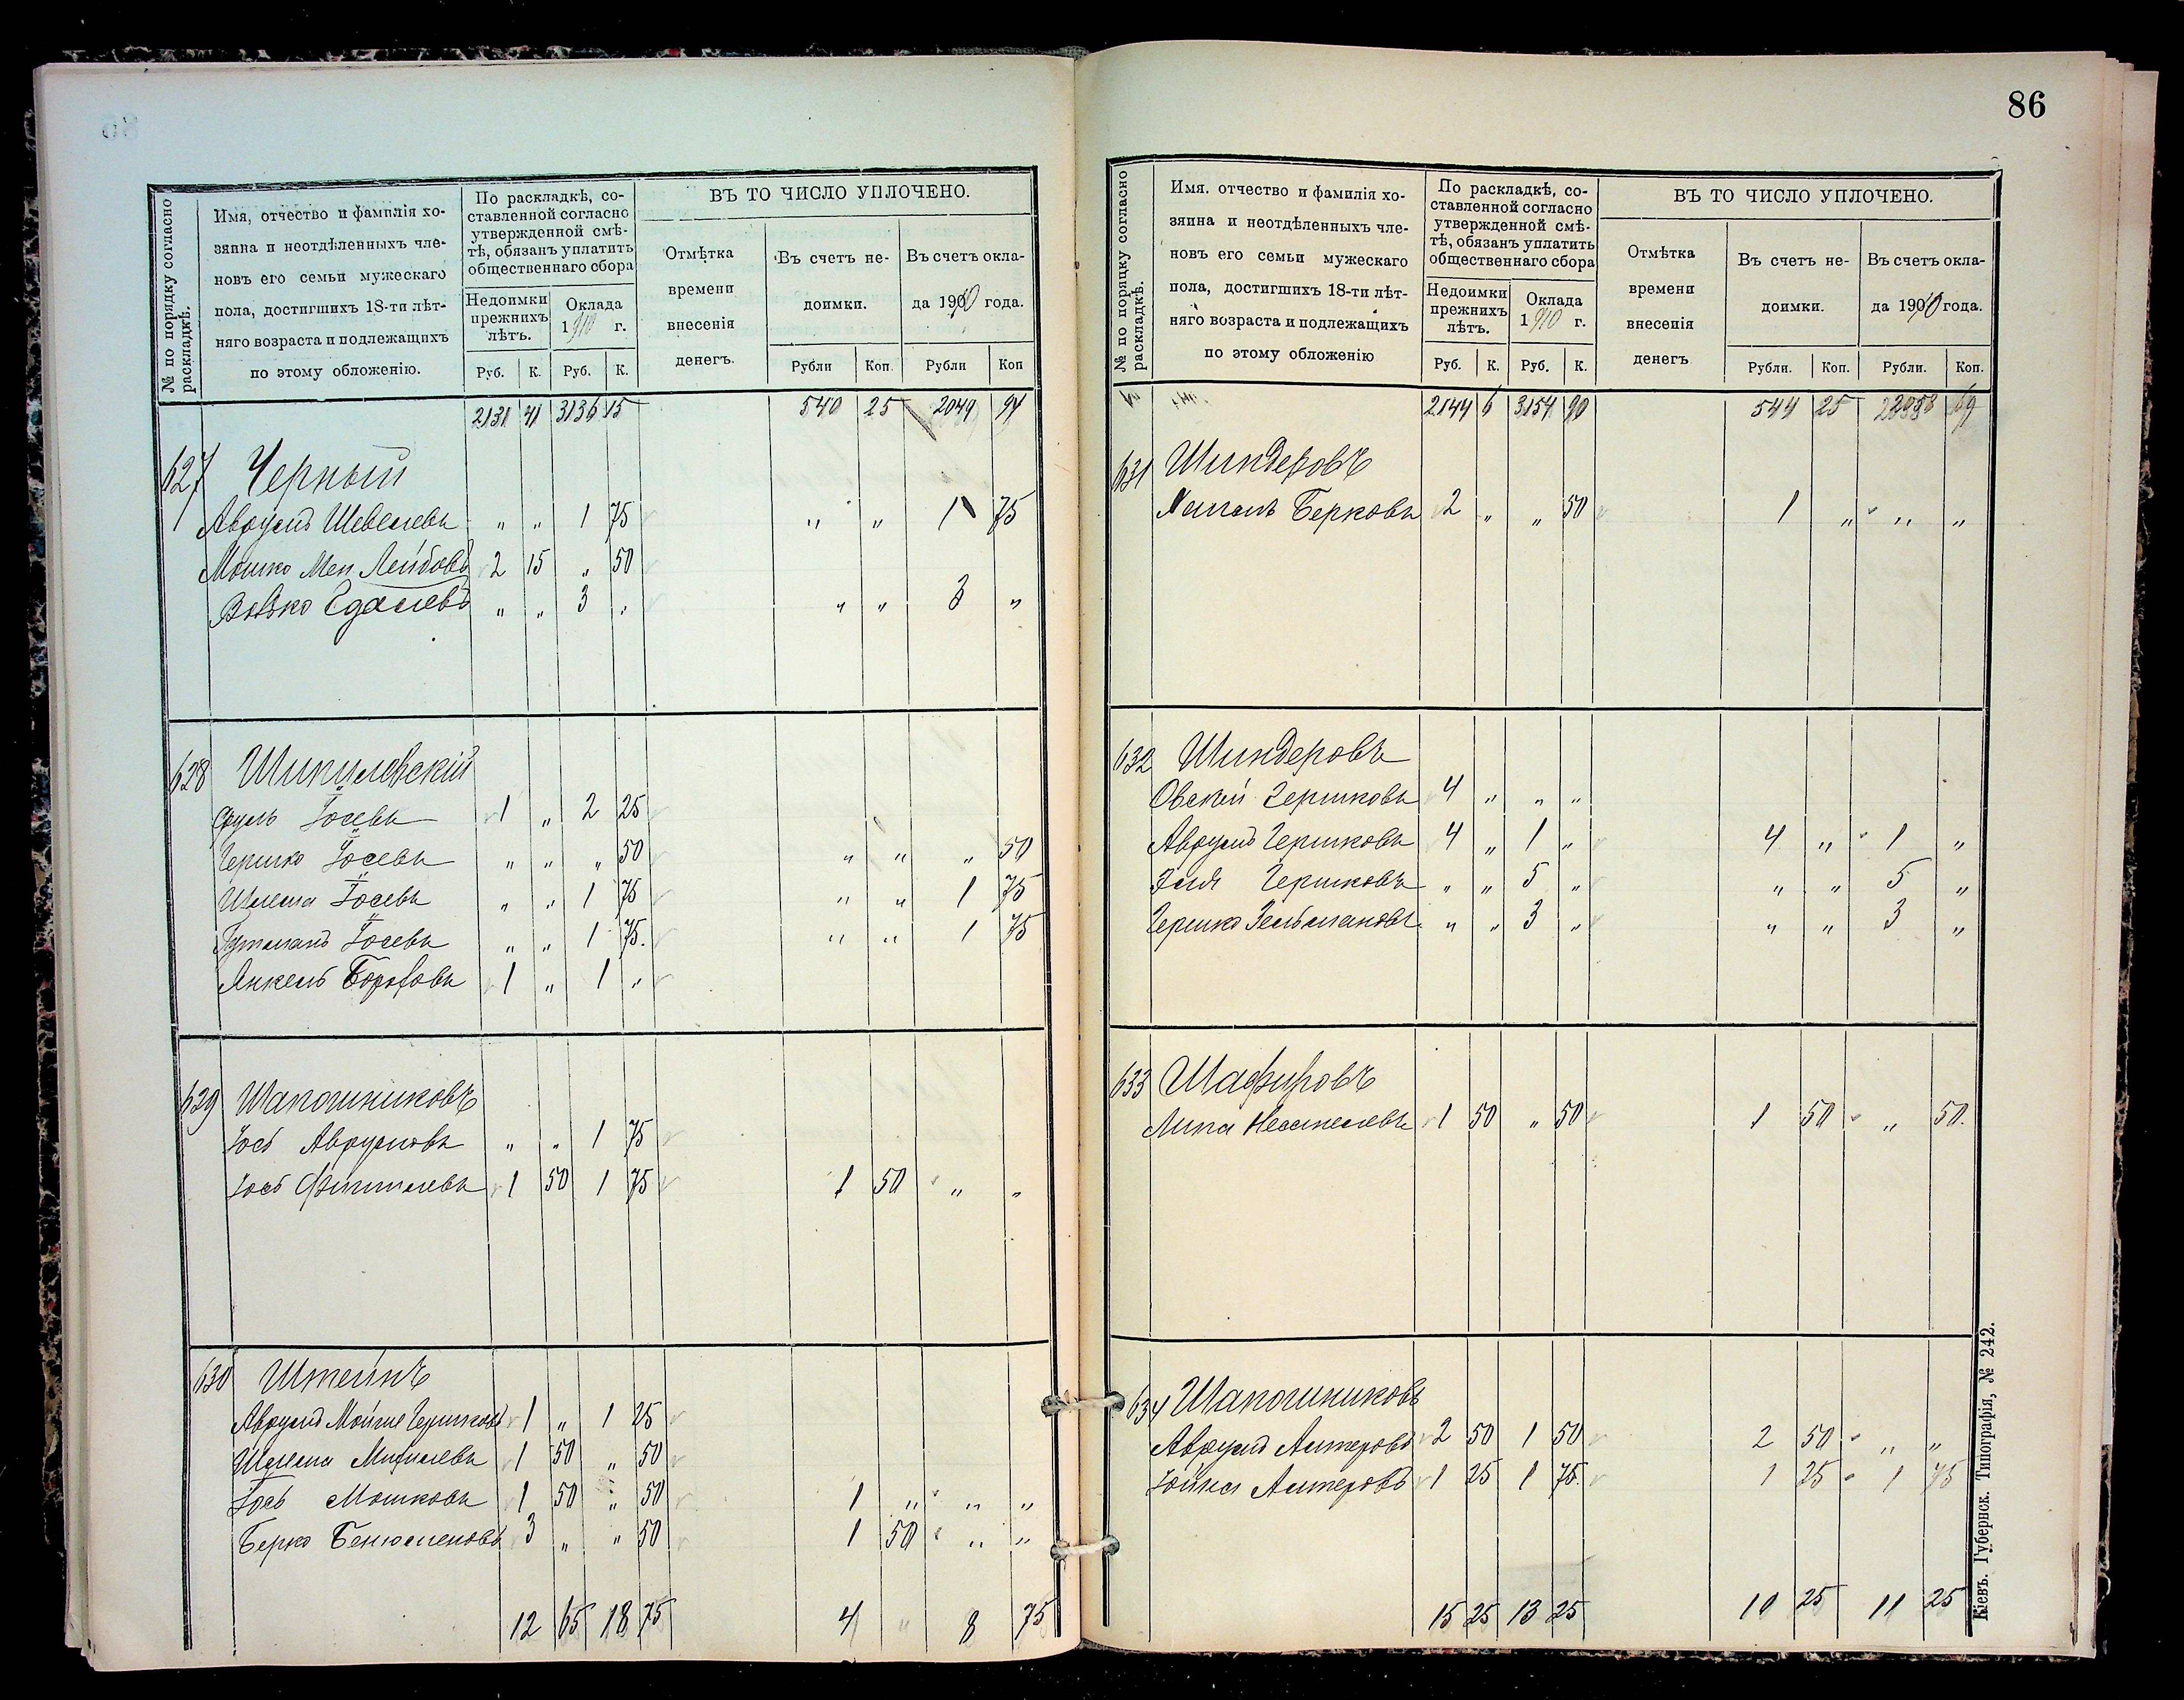 № по порядку согласно раскладкѣ.
Имя, отчество и фамилія хо-
зяина и неотдѣленныхъ чле-
новъ его семьи мужескаго
пола, достигшихъ 18-ти лѣт-
няго возраста и подлежащихъ
по этому обложенію.
По раскладкѣ, со-
ставленной согласно
утвержденной смѣ-
тѣ, обязанъ уплатить
общественнаго сбора
Недоимки прежнихъ лѣтъ.
Оклада 1910 г.
ВЪ ТО ЧИСЛО УПЛОЧЕНО.
Отмѣтка времени внесенія денегъ.
Въ счетъ не-доимки.
Въ счетъ окла-да 1910 года.
Руб. К. Руб. К. Рубли Коп. Рубли Коп
2131 41 3136 15 540 25 2049 94
627 Черный
Аврумъ Шевелевъ " " 1 75 " " 1 75
Мошко Мен Лейбовъ 2 15 " 50
Волько Гдалевъ " " 3 " " " 3 "
628 Шпилевскій
Сруль Іосевъ 1 " 2 25
Гершко Іосевъ " " " 50 " " " 50
Шлема Іосевъ " " 1 75 " " 1 75
Гутманъ Іосевъ " " 1 75. " " 1 75
Янкель Боруховъ 1 " 1 "
629 Шапошниковъ
Іось Аврумовъ " " 1 75
Іось Фишилевъ 1 50 1 75 1 50 " "
630 Штейнъ
Аврумъ Мойше Гершковъ 1 " 1 25
Шлема Михилевъ 1 50 " 50
Іось Мошковъ 1 50 " 50 1 " " "
Берко Бенюменовъ 3 " " 50 1 50 " "
12 65 18 75 4 " 8 75
86
№ по порядку согласно раскладкѣ.
Имя, отчество и фамилія хо-
зяина и неотдѣленныхъ чле-
новъ его семьи мужескаго
пола, достигшихъ 18-ти лѣт-
няго возраста и подлежащихъ
по этому обложенію
По раскладкѣ, со-
ставленной согласно
утвержденной смѣ-
тѣ, обязанъ уплатить
общественнаго сбора
Недоимки прежнихъ лѣтъ.
Оклада 1910 г.
ВЪ ТО ЧИСЛО УПЛОЧЕНО.
Отмѣтка времени внесенія денегъ
Въ счетъ не-доимки.
Въ счетъ окла-да 1910 года.
Руб. К. Руб. К. Рубли. Коп. Рубли. Коп.
2144 6 3154 90 544 25 69
631 Шиндеровъ
Берковъ 2 " " 50 1 " " "
632 Шиндеровъ
Овсей Гершковъ 4 " " "
Аврумъ Гершковъ 4 " 1 " 4 " 1 "
Гершковъ " " 5 " " " 5 "
Гершко Зельмановъ " " 3 " " " 3 "
633 Шафировъ
Липа 1 50 " 50 1 50 " 50.
634 Шапошниковъ
Аврумъ Алтеровъ 2 50 1 50 2 50 " "
Алтеровъ 1 25 1 75. 1 25 1 75
15 25 13 25 10 25 11 25
Кіевъ. Губернск. Типографія, № 242.